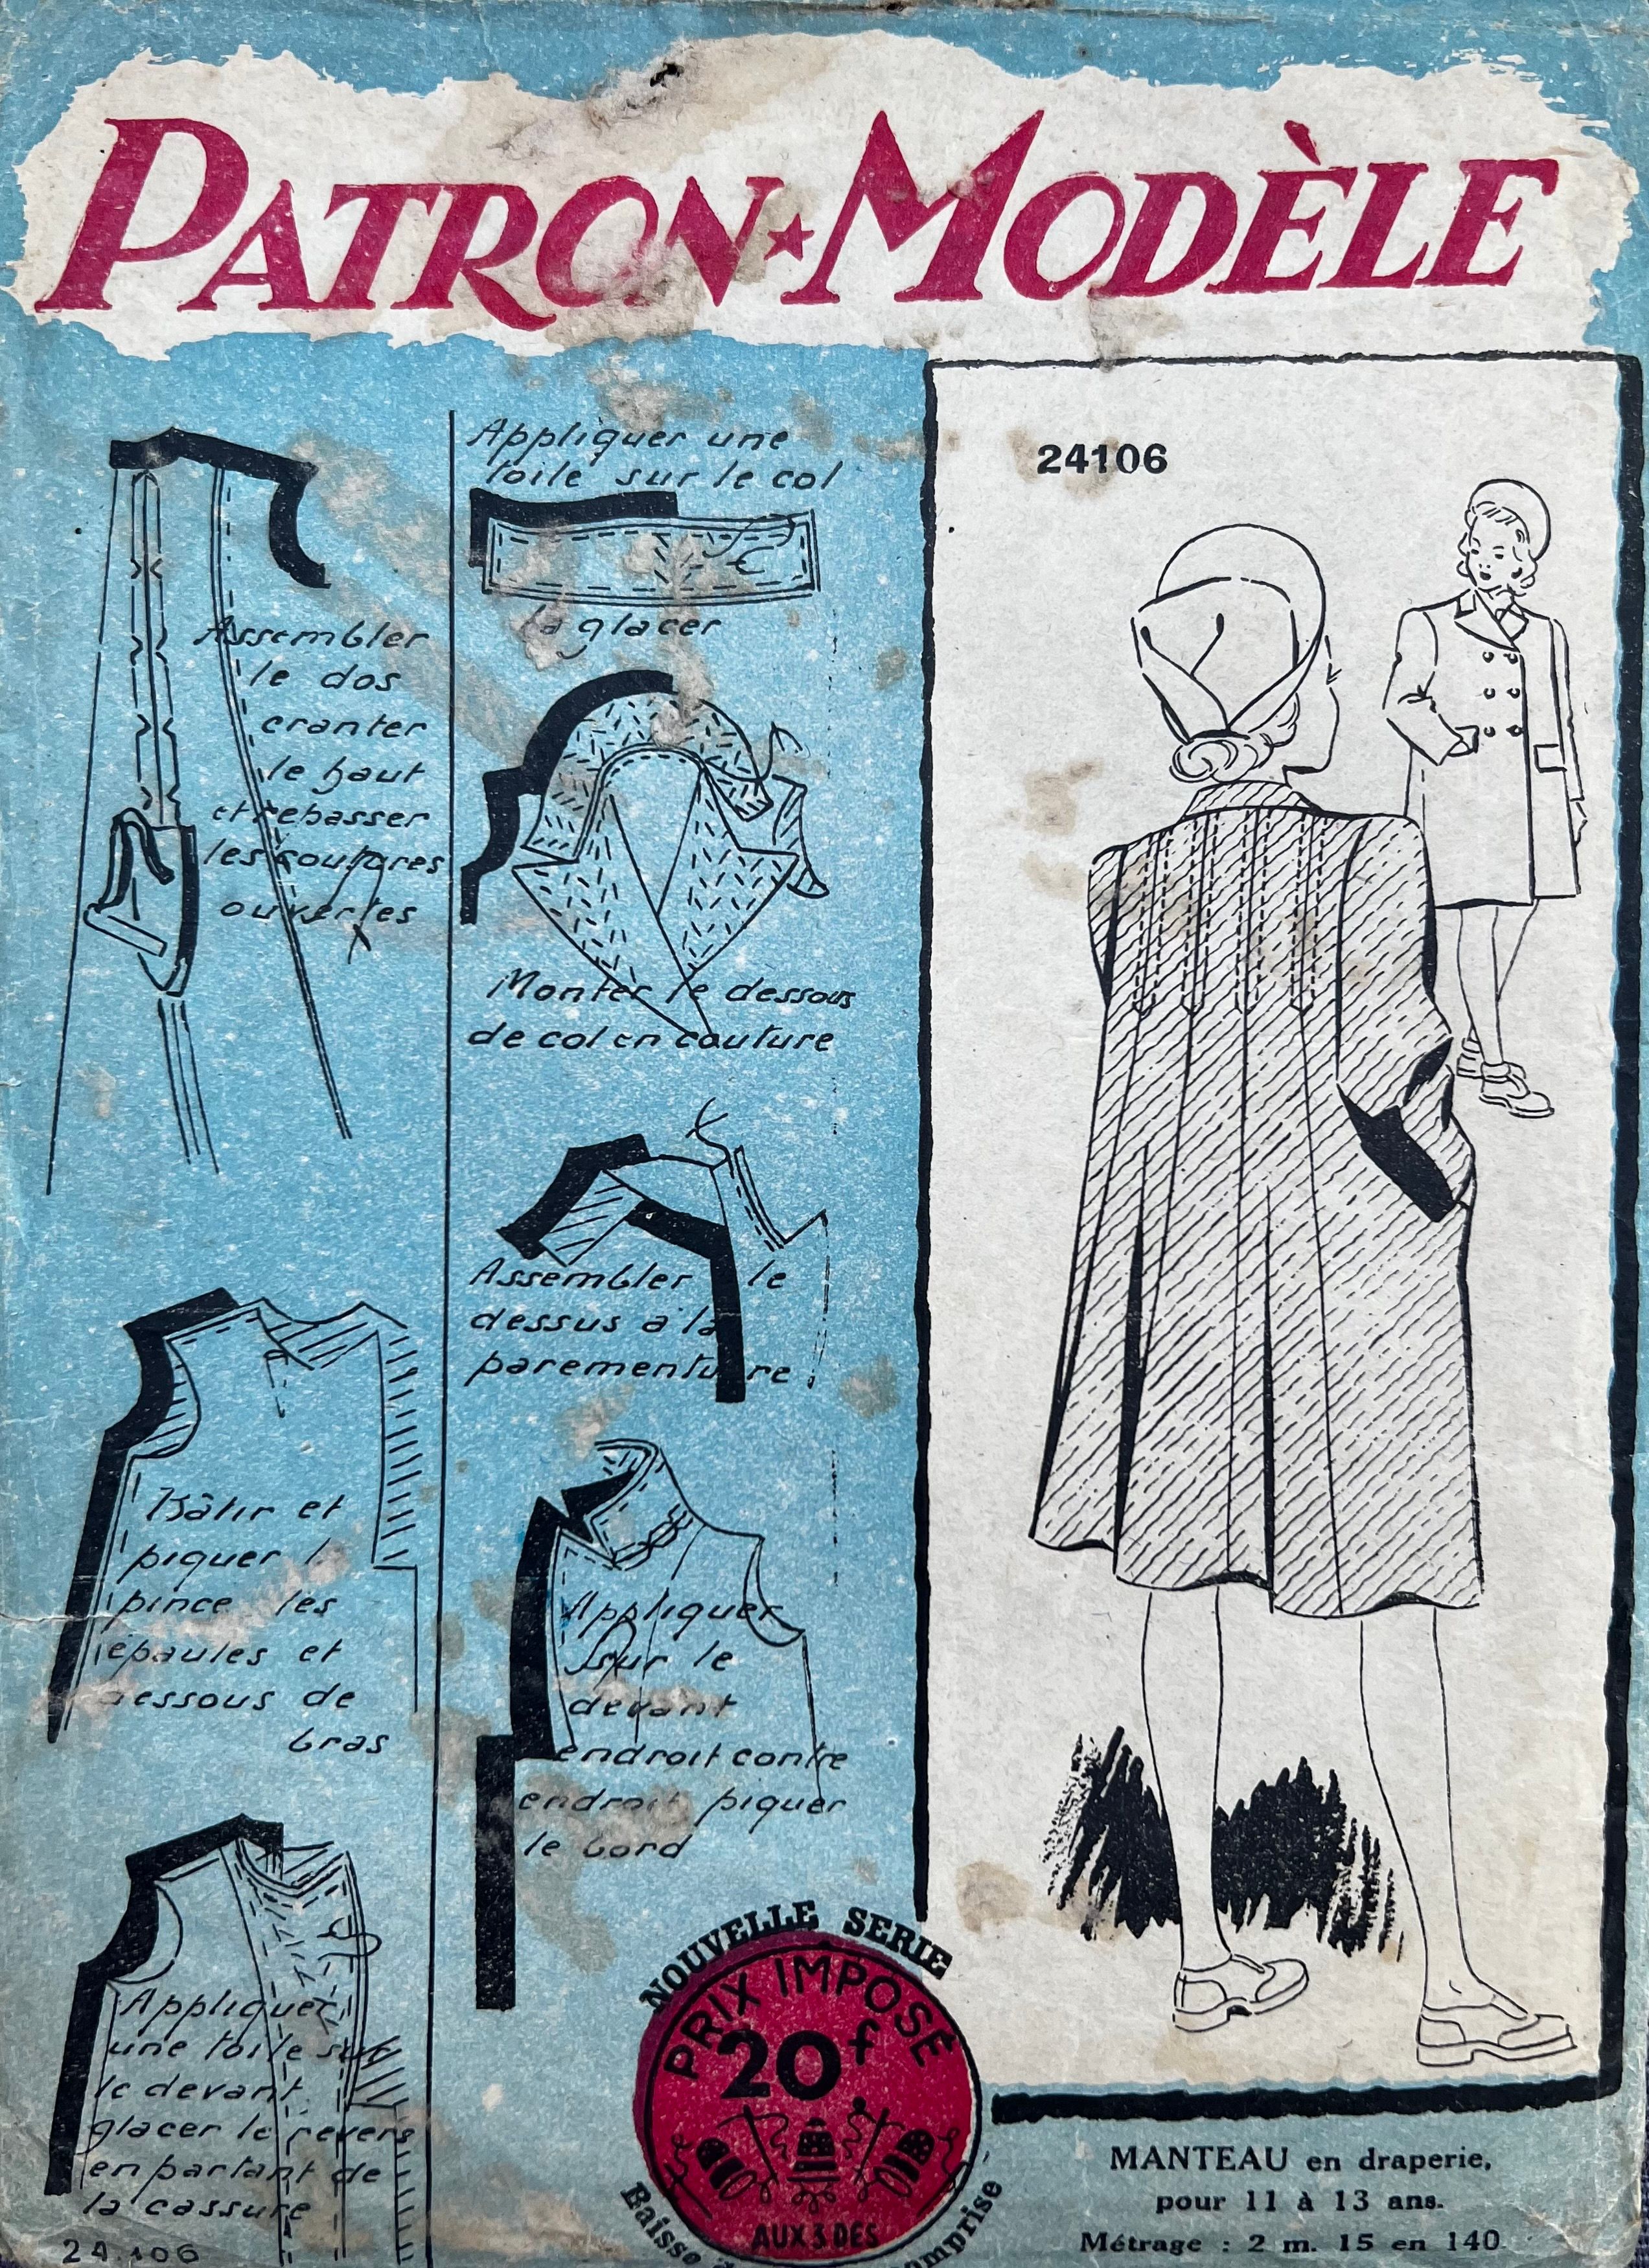 PATRON★MODÈLE
Assembler
le dos
cranter
le haut
et rebasser
les coutures
ouvertes
Bâtir et
piquer
pince les
épaules et
dessous de
bras
Appliquer
une toile sur
le devant
glacer le revers
en partant de
la cassure
24.106
Appliquer une
toile sur le col
la glacer
Monter le dessous
de col en couture
Assembler le
dessus à la
parementure
Appliquer
sur le
devant
endroit contre
endroit piquer
le bord
NOUVELLE SERIE
PRIX IMPOSÉ
20f
AUX 3 DES
Baisse comprise
24106
MANTEAU en draperie,
pour 11 à 13 ans.
Métrage : 2 m. 15 en 140